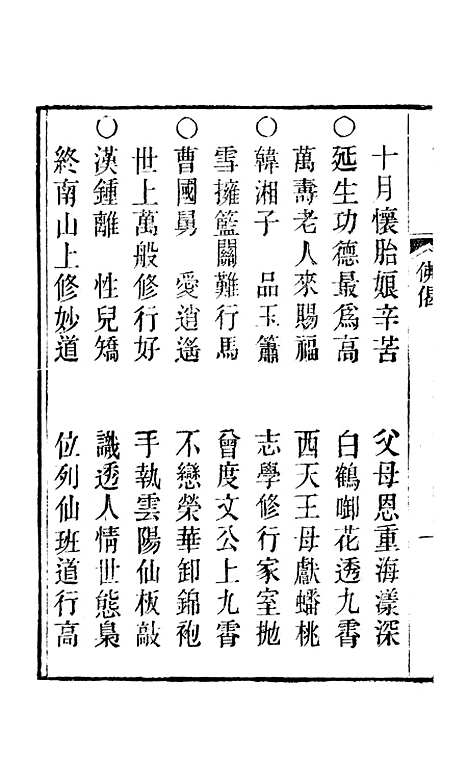 佛偈
一
十月懷胎娘辛苦 父母恩重海漾深
○延生功德最爲高 白鶴啣花透九霄
萬壽老人來賜福 西天王母獻蟠桃
○韓湘子 品玉簫 志學修行家室拋
雪擁籃關難行馬 曾度文公上九霄
○曹國舅 愛逍遙 不戀榮華卸錦袍
世上萬般修行好 手執雲陽仙板敲
○漢鍾離 性兒矯 識透人情世態梟
終南山上修妙道 位列仙班道行高